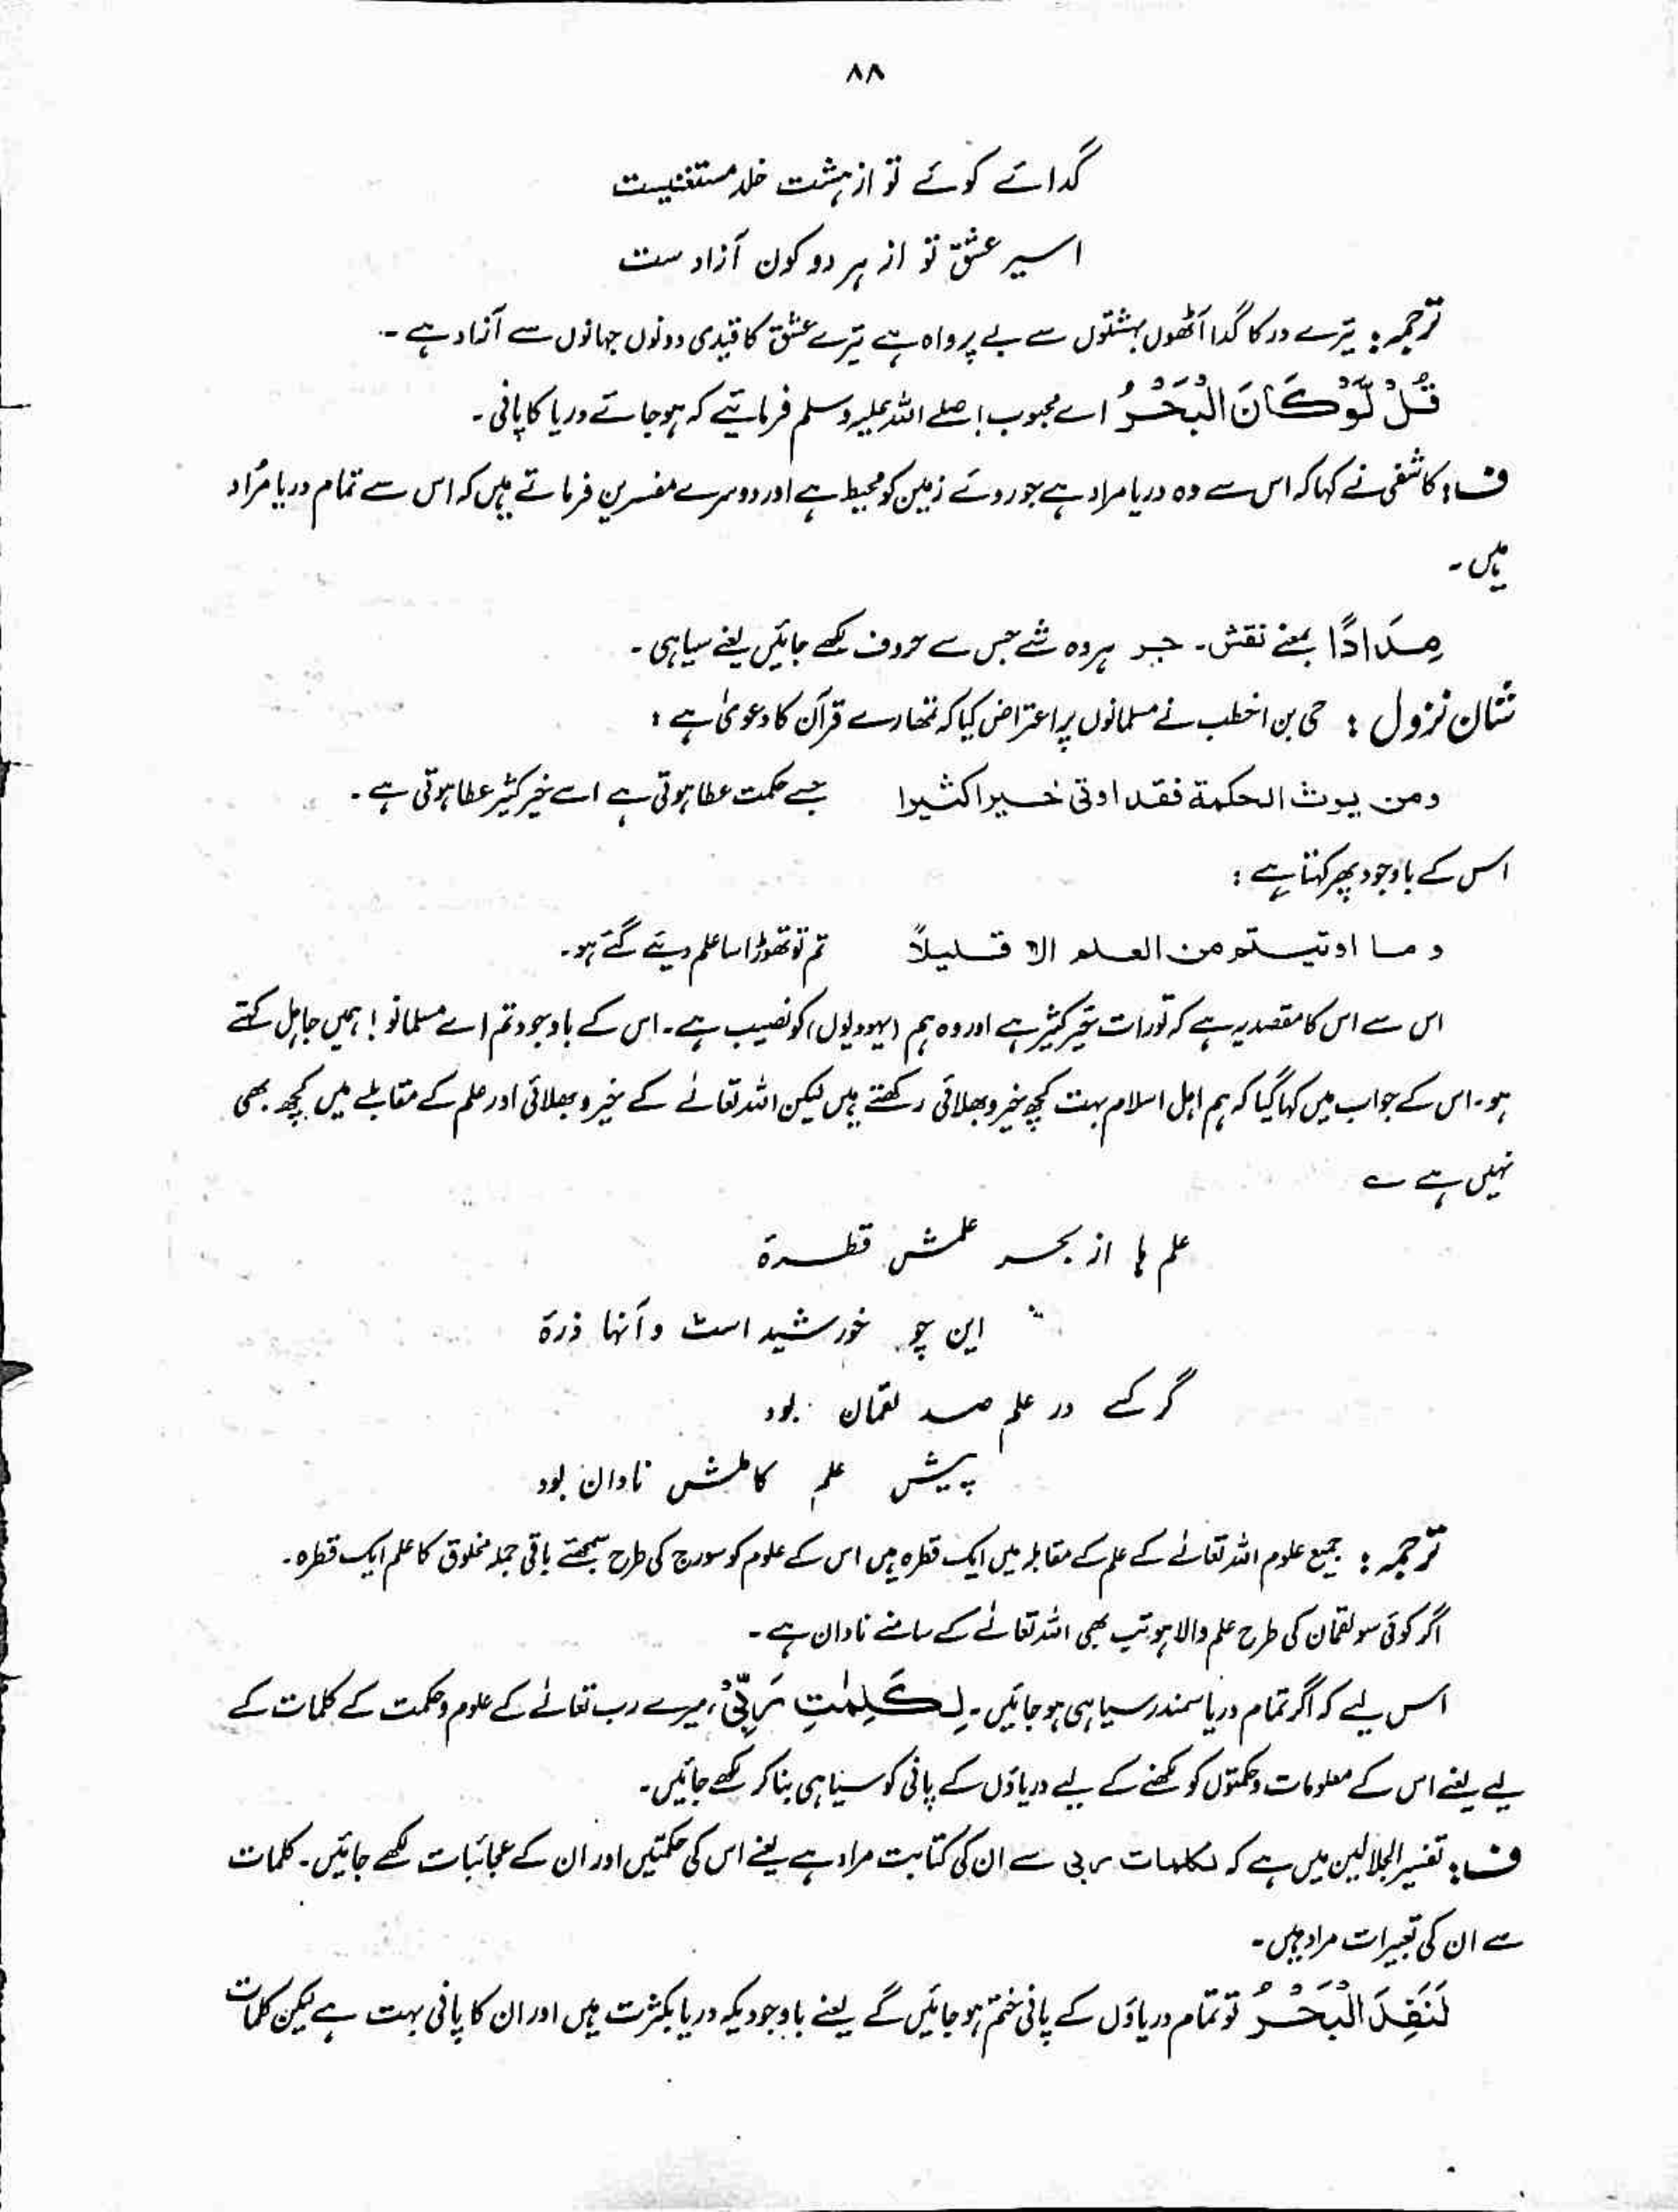 ۸۸
گدائے کوئے تو از ہشت خلد مستغنیست
اسیر عشق تو از ہر دو کون آزاد ست
ترجمہ: تیرے در کا گدا آٹھوں بہشتوں سے بے پرواہ ہے تیرے عشق کا قیدی دونوں جہانوں سے آزاد ہے ۔
قُلْ لَّوْ كَانَ الْبَحْرُ اے محبوب! صلے اللہ علیہ وسلم فرمائیے کہ ہو جائے دریا کا پانی ۔
ف: کاشفی نے کہا کہ اس سے وہ دریا مراد ہے جو روئے زمین کو محیط ہے اور دوسرے مفسرین فرماتے ہیں کہ اس سے تمام دریا مُراد
ہیں ۔
مِدَادًا بمعنے نقش ۔ حبر ہر وہ شے جس سے حروف لکھے جائیں یعنے سیاہی ۔
شان نزول : حی بن اخطب نے مسلمانوں پر اعتراض کیا کہ تمھارے قرآن کا دعویٰ ہے :
ومن یوت الحکمة فقد اوتی خیرا کثیرا جسے حکمت عطا ہوتی ہے اسے خیر کثیر عطا ہوتی ہے ۔
اس کے باوجود پھر کہتا ہے :
وما اوتیتم من العلم الا قلیلاً تم تو تھوڑا سا علم دیئے گئے ہو ۔
اس سے اس کا مقصد یہ ہے کہ تورات خیر کثیر ہے اور وہ ہم (یہودیوں) کو نصیب ہے ۔ اس کے باوجود تم اے مسلمانو! ہمیں جاہل کہتے
ہو ۔ اس کے جواب میں کہا گیا کہ ہم اہل اسلام بہت کچھ خیر و بھلائی رکھتے ہیں لیکن اللہ تعالےٰ کے خیر و بھلائی اور علم کے مقابلے میں کچھ بھی
نہیں ہے ؎
علم ہا از بحر علمش قطرۃ
این چو خورشید است و آنہا ذرۃ
گر کسے در علم صد لقمان بود
پیش علم کاملش نادان بود
ترجمہ : جمیع علوم اللہ تعالےٰ کے علم کے مقابلہ میں ایک قطرہ ہیں اس کے علوم کو سورج کی طرح سمجھئے باقی جملہ مخلوق کا علم ایک قطرہ ۔
اگر کوئی سو لقمان کی طرح علم والا ہو تب بھی اللہ تعالےٰ کے سامنے نادان ہے ۔
اس لیے کہ اگر تمام دریا سمندر سیاہی ہو جائیں ۔ لِكَلِمٰتِ رَبِّیْ، میرے رب تعالےٰ کے علوم و حکمت کے کلمات کے
لیے یعنے اس کے معلومات و حکمتوں کو لکھنے کے لیے دریاؤں کے پانی کو سیاہی بنا کر لکھے جائیں ۔
ف: تفسیر الجلالین میں ہے کہ لکلمات ربی سے ان کی کتابت مراد ہے یعنے اس کی حکمتیں اور ان کے عجائبات لکھے جائیں ۔ کلمات
سے ان کی تعبیرات مراد ہیں ۔
لَنَفِدَ الْبَحْرُ تو تمام دریاؤں کے پانی ختم ہو جائیں گے یعنے باوجودیکہ دریا بکثرت ہیں اور ان کا پانی بہت ہے لیکن کلمات